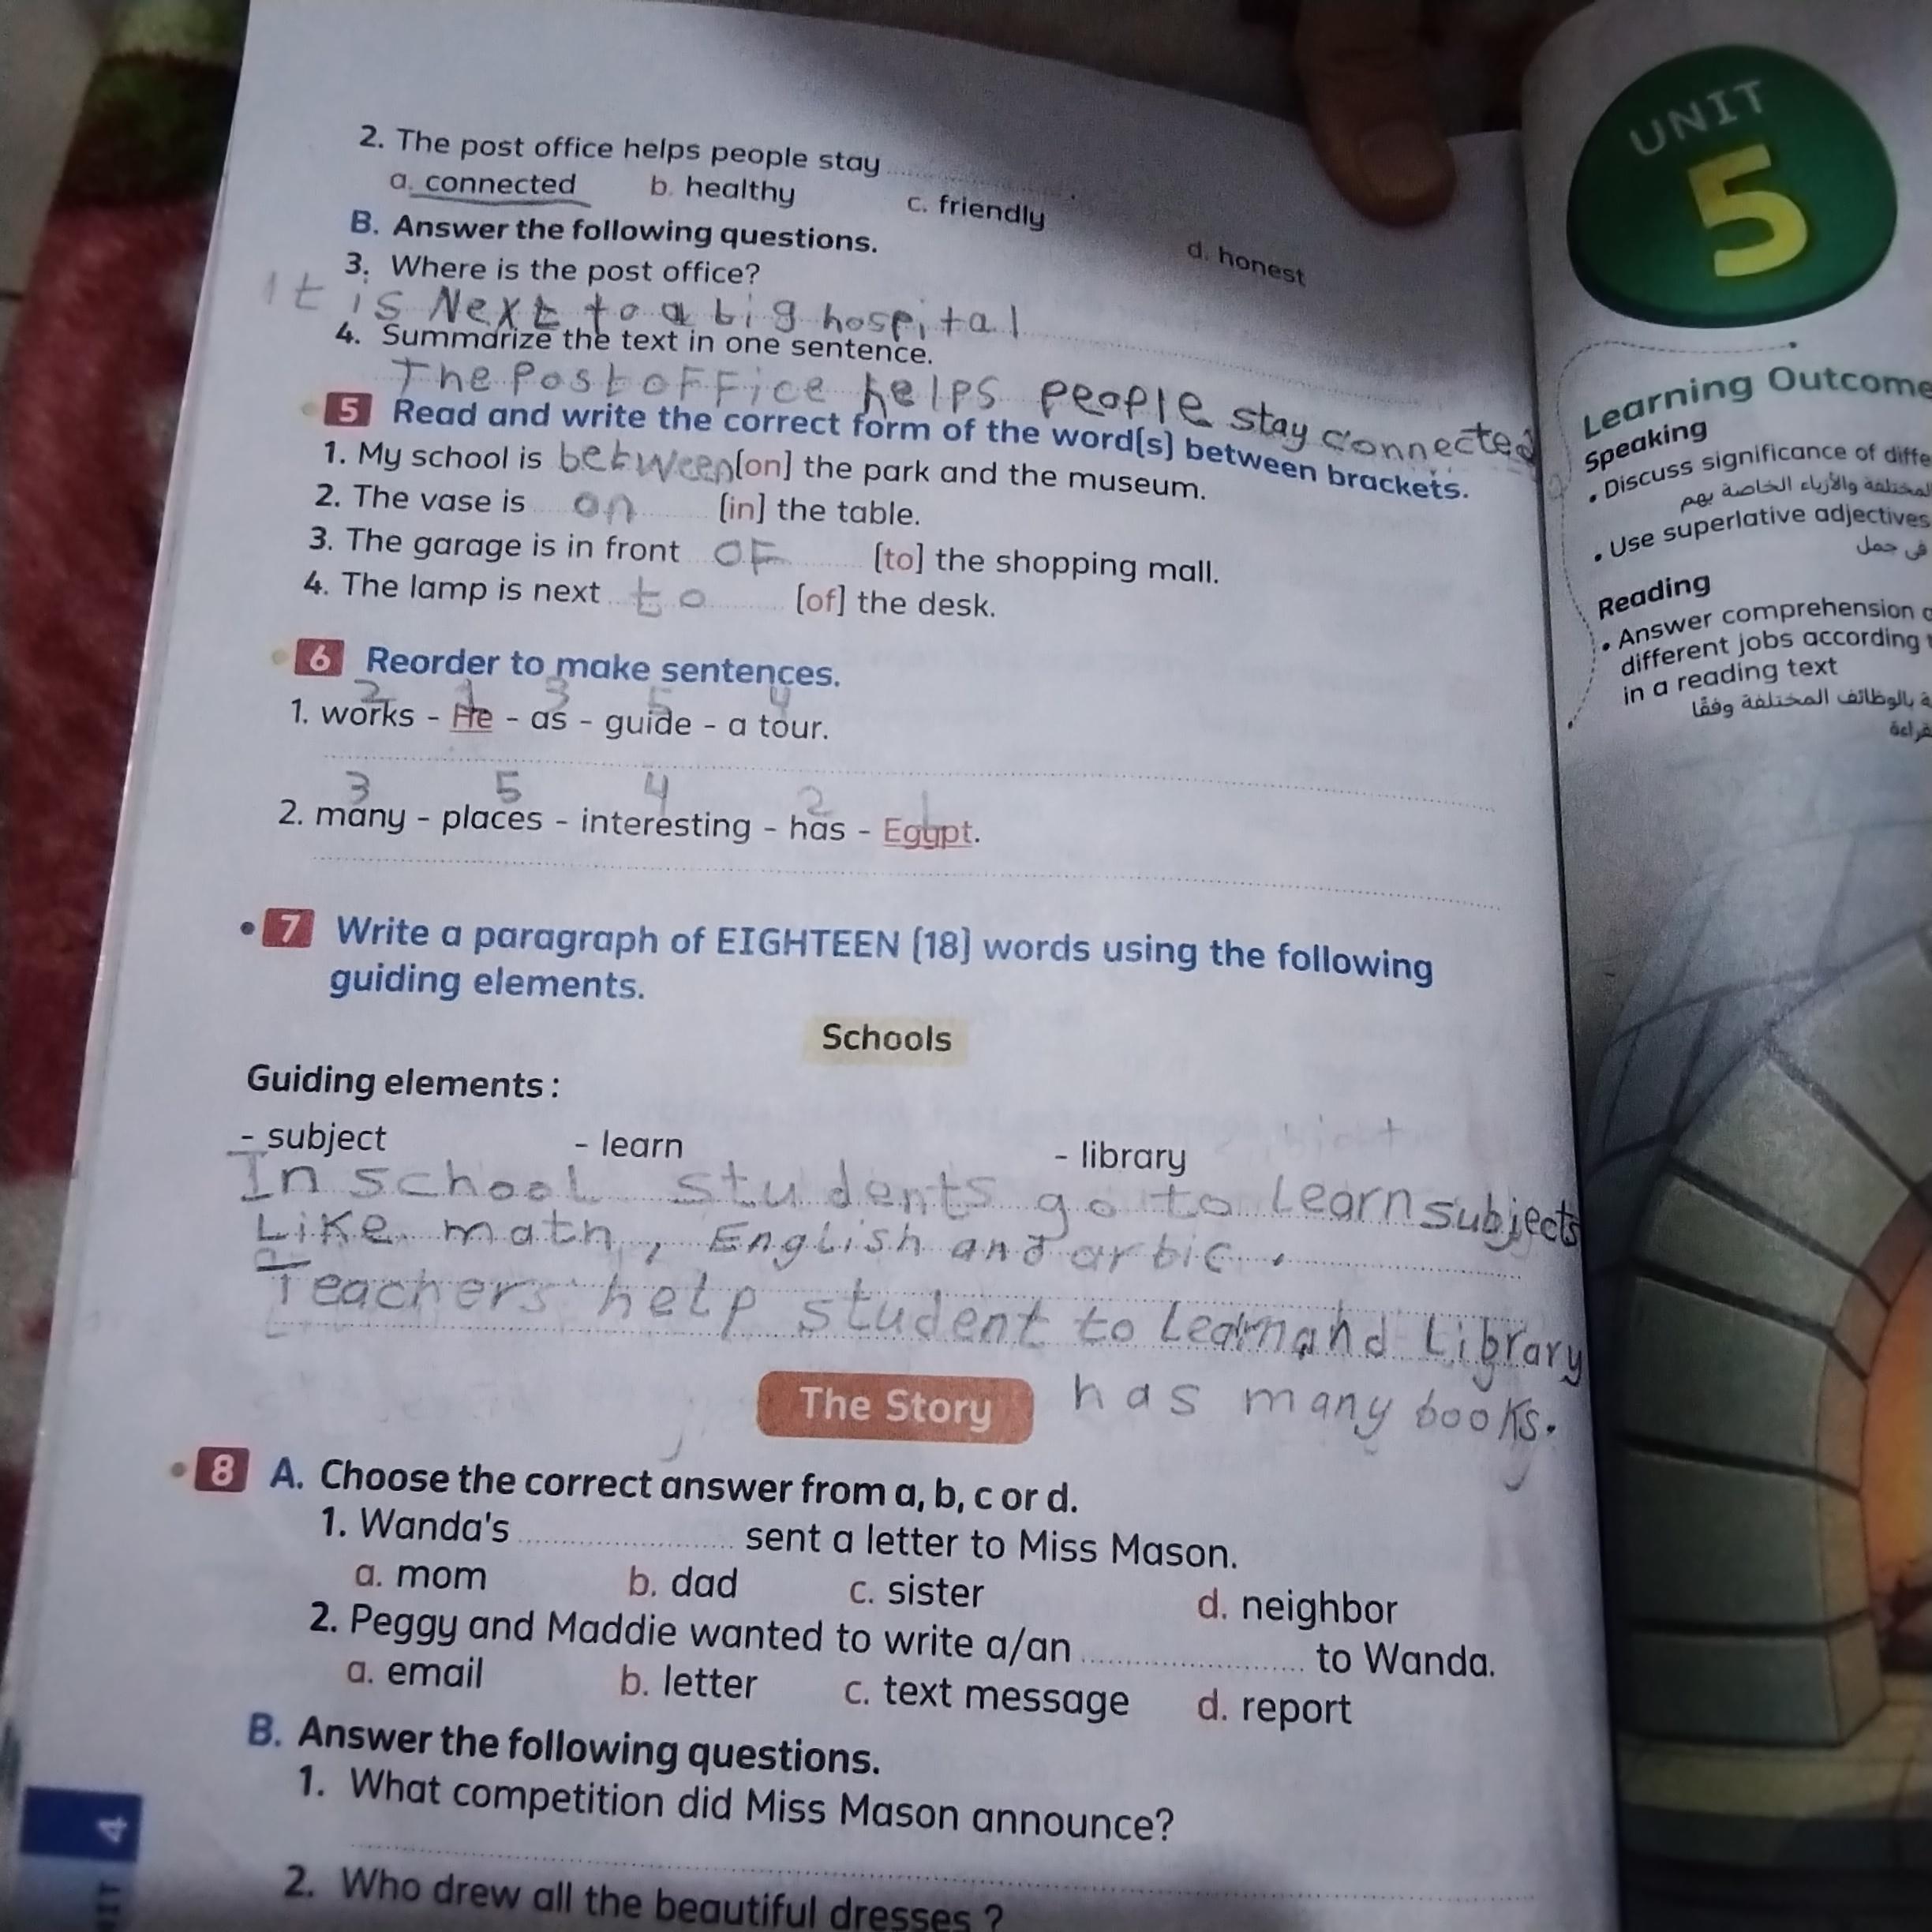 2. The post office helps people stay ............ .
a. connected b. healthy c. friendly d. honest
B. Answer the following questions.
3. Where is the post office?
It is Next to a big hospital
4. Summarize the text in one sentence.
The Post oFFice helPs people stay connected
5 Read and write the correct form of the word(s) between brackets.
1. My school is between [on] the park and the museum.
2. The vase is on [in] the table.
3. The garage is in front OF [to] the shopping mall.
4. The lamp is next to [of] the desk.
6 Reorder to make sentences.
2 1 3 5 4
1. works - He - as - guide - a tour.
3 5 4 2 1
2. many - places - interesting - has - Egypt.
7 Write a paragraph of EIGHTEEN (18) words using the following
guiding elements.
Schools
Guiding elements :
- subject - learn - library
In school students go to learn subjects
Like math, English and arbic.
Teachers help student to Learn and Library
has many books.
The Story
8 A. Choose the correct answer from a, b, c or d.
1. Wanda's ............ sent a letter to Miss Mason.
a. mom b. dad c. sister d. neighbor
2. Peggy and Maddie wanted to write a/an ............ to Wanda.
a. email b. letter c. text message d. report
B. Answer the following questions.
1. What competition did Miss Mason announce?
2. Who drew all the beautiful dresses ?
4
UNIT
5
Learning Outcome
Speaking
• Discuss significance of diffe
المختلفة والأزياء الخاصة بهم
• Use superlative adjectives
فى جمل
Reading
• Answer comprehension
different jobs according
in a reading text
بالوظائف المختلفة وفقًا